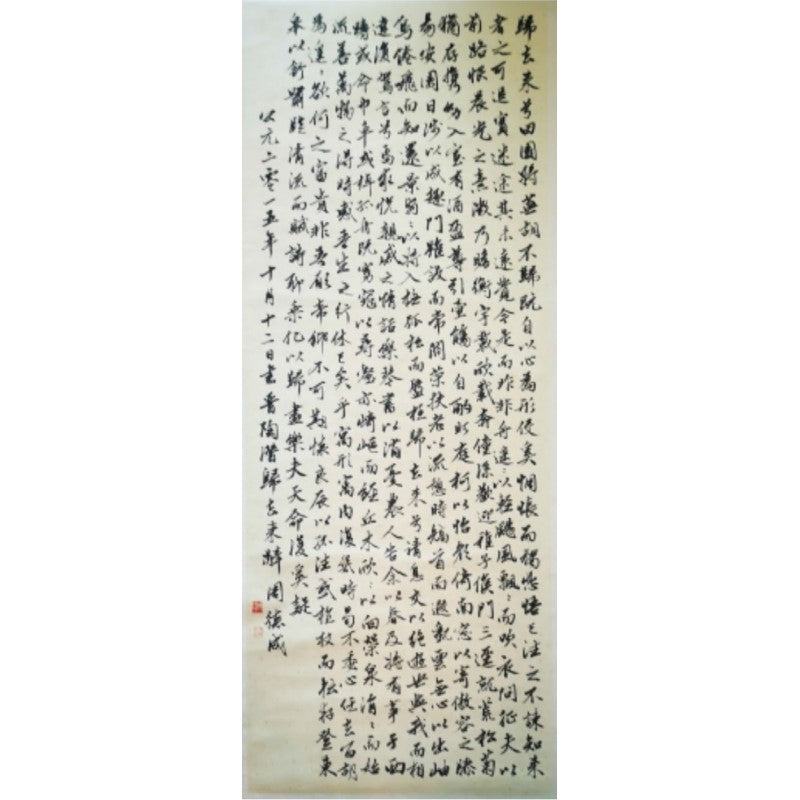 歸去來兮田園將蕪胡不歸既自以心為形役奚惆悵而獨悲悟已往之不諫知來
者之可追實迷途其未遠覺今是而昨非舟遙以輕颺風飄飄而吹衣問征夫以
前路恨晨光之熹微乃瞻衡宇載欣載奔僮僕歡迎稚子候門三逕就荒松菊
猶存攜幼入室有酒盈尊引壺觴以自酌眄庭柯以怡顏倚南窗以寄傲容之膝
易安園日涉以成趣門雖設而常關策扶老以流憩時矯首而遐觀雲無心以出岫
鳥倦飛而知還景翳翳以將入撫孤松而盤桓歸去來兮請息交以絕遊世與我而相
遺復駕言兮焉求悅親戚之情話樂琴書以消憂農人告余以春及將有事于西
疇或命巾車或棹孤舟既窈窕以尋壑亦崎嶇而經丘木欣欣以向榮泉涓涓而始
流善萬物之得時感吾生之行休已矣乎寓形寓內復幾時曷不委心任去留胡
為遑遑欲何之富貴非吾願帝鄉不可期懷良辰以孤往或植杖而耘耔登東
皋以舒嘯臨清流而賦詩聊乘化以歸盡樂夫天命復奚疑
公元二零一五年十月十二日書晉陶潛歸去來辭 周德成